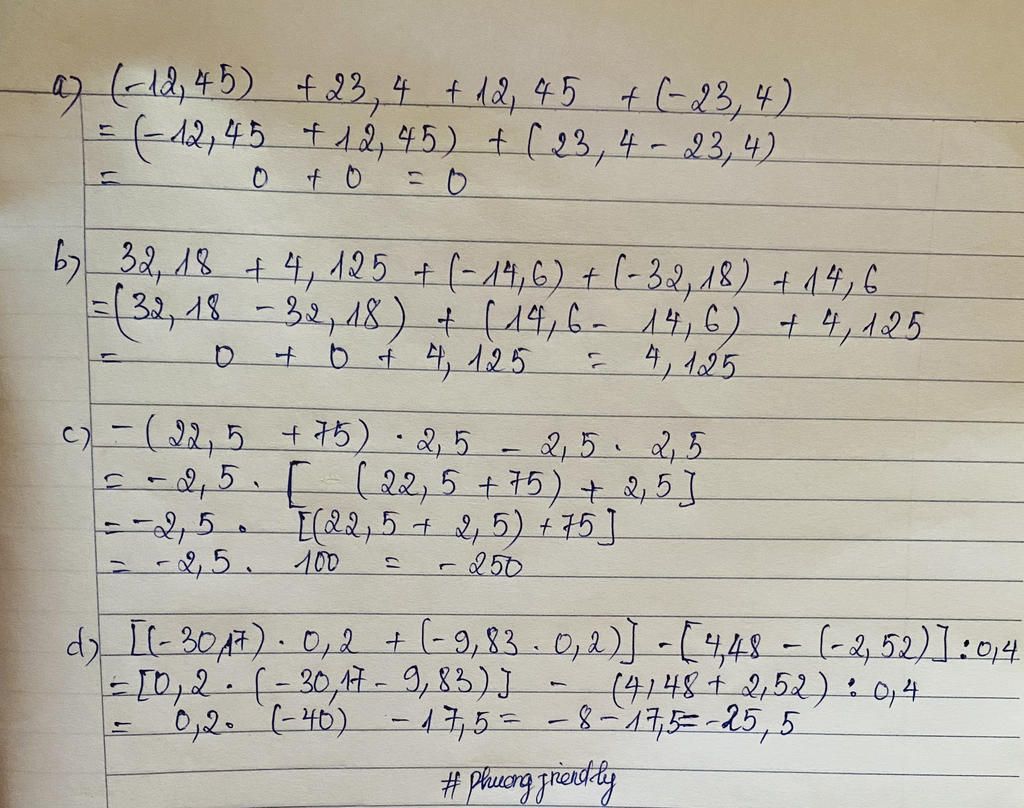 a) (-12,45) + 23,4 + 12,45 + (-23,4)
= (-12,45 + 12,45) + (23,4 - 23,4)
= 0 + 0 = 0
b) 32,18 + 4,125 + (-14,6) + (-32,18) + 14,6
= (32,18 - 32,18) + (14,6 - 14,6) + 4,125
= 0 + 0 + 4,125 = 4,125
c) - (22,5 + 75) . 2,5 - 2,5 . 2,5
= -2,5 . [ (22,5 + 75) + 2,5]
= -2,5 . [(22,5 + 2,5) + 75]
= -2,5 . 100 = -250
d) [(-30,17) . 0,2 + (-9,83 . 0,2)] - [4,48 - (-2,52)] : 0,4
= [0,2 . (-30,17 - 9,83)] - (4,48 + 2,52) : 0,4
= 0,2 . (-40) - 17,5 = -8 - 17,5 = -25,5
# phuongfriendly